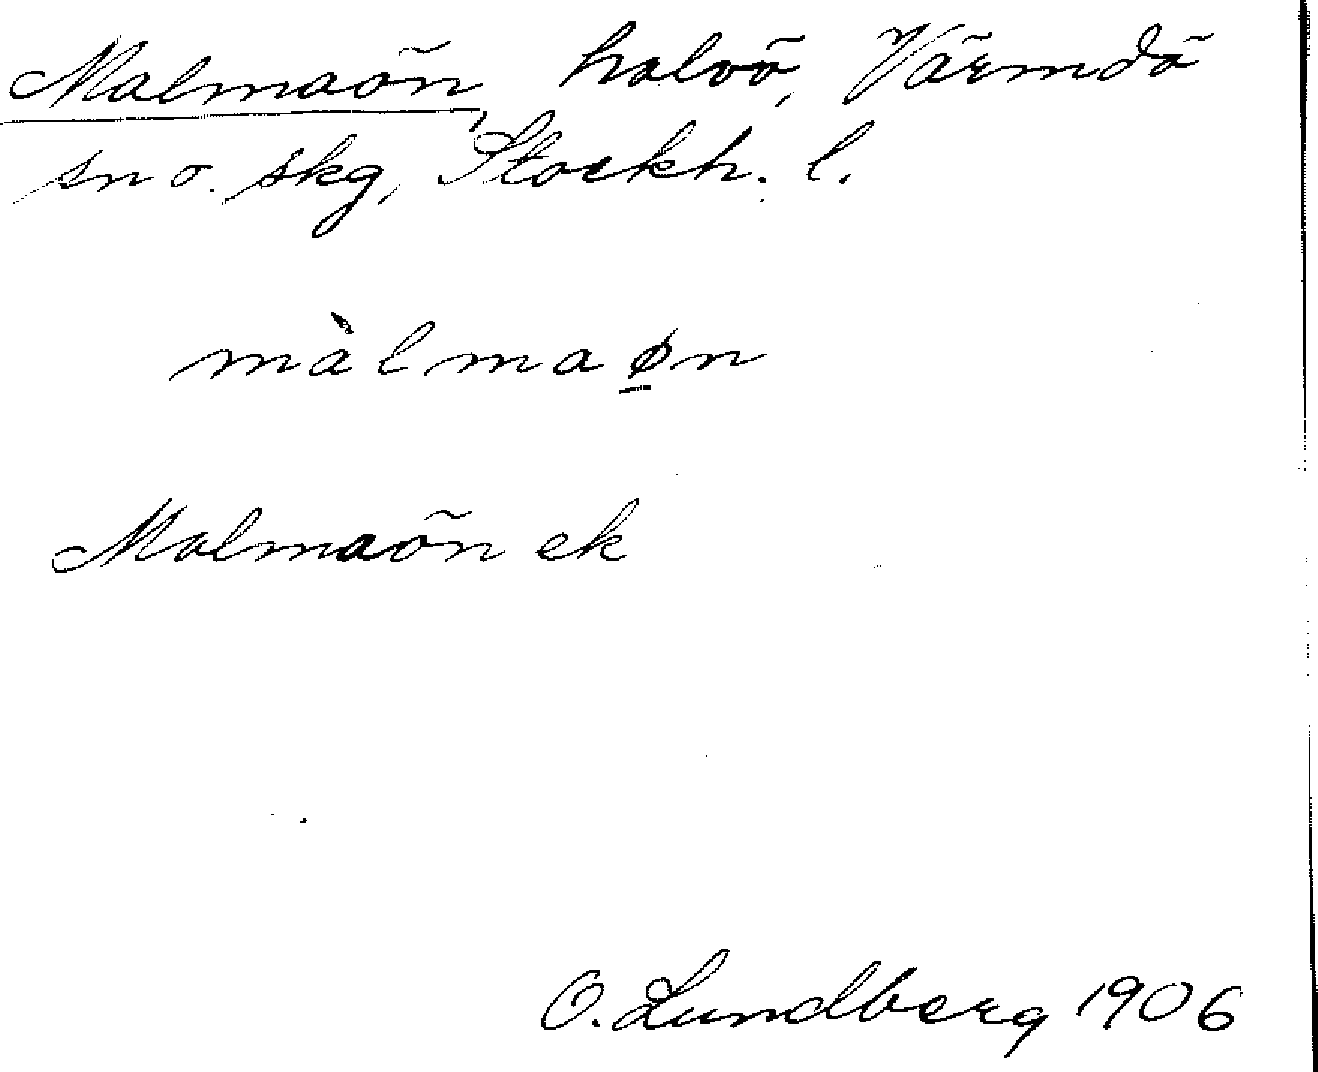 Malmaön, halvö, Värmdö
sn o. skg, Stockh. l.
màlmaø̠n
Malmaön ek
O. Lundberg 1906